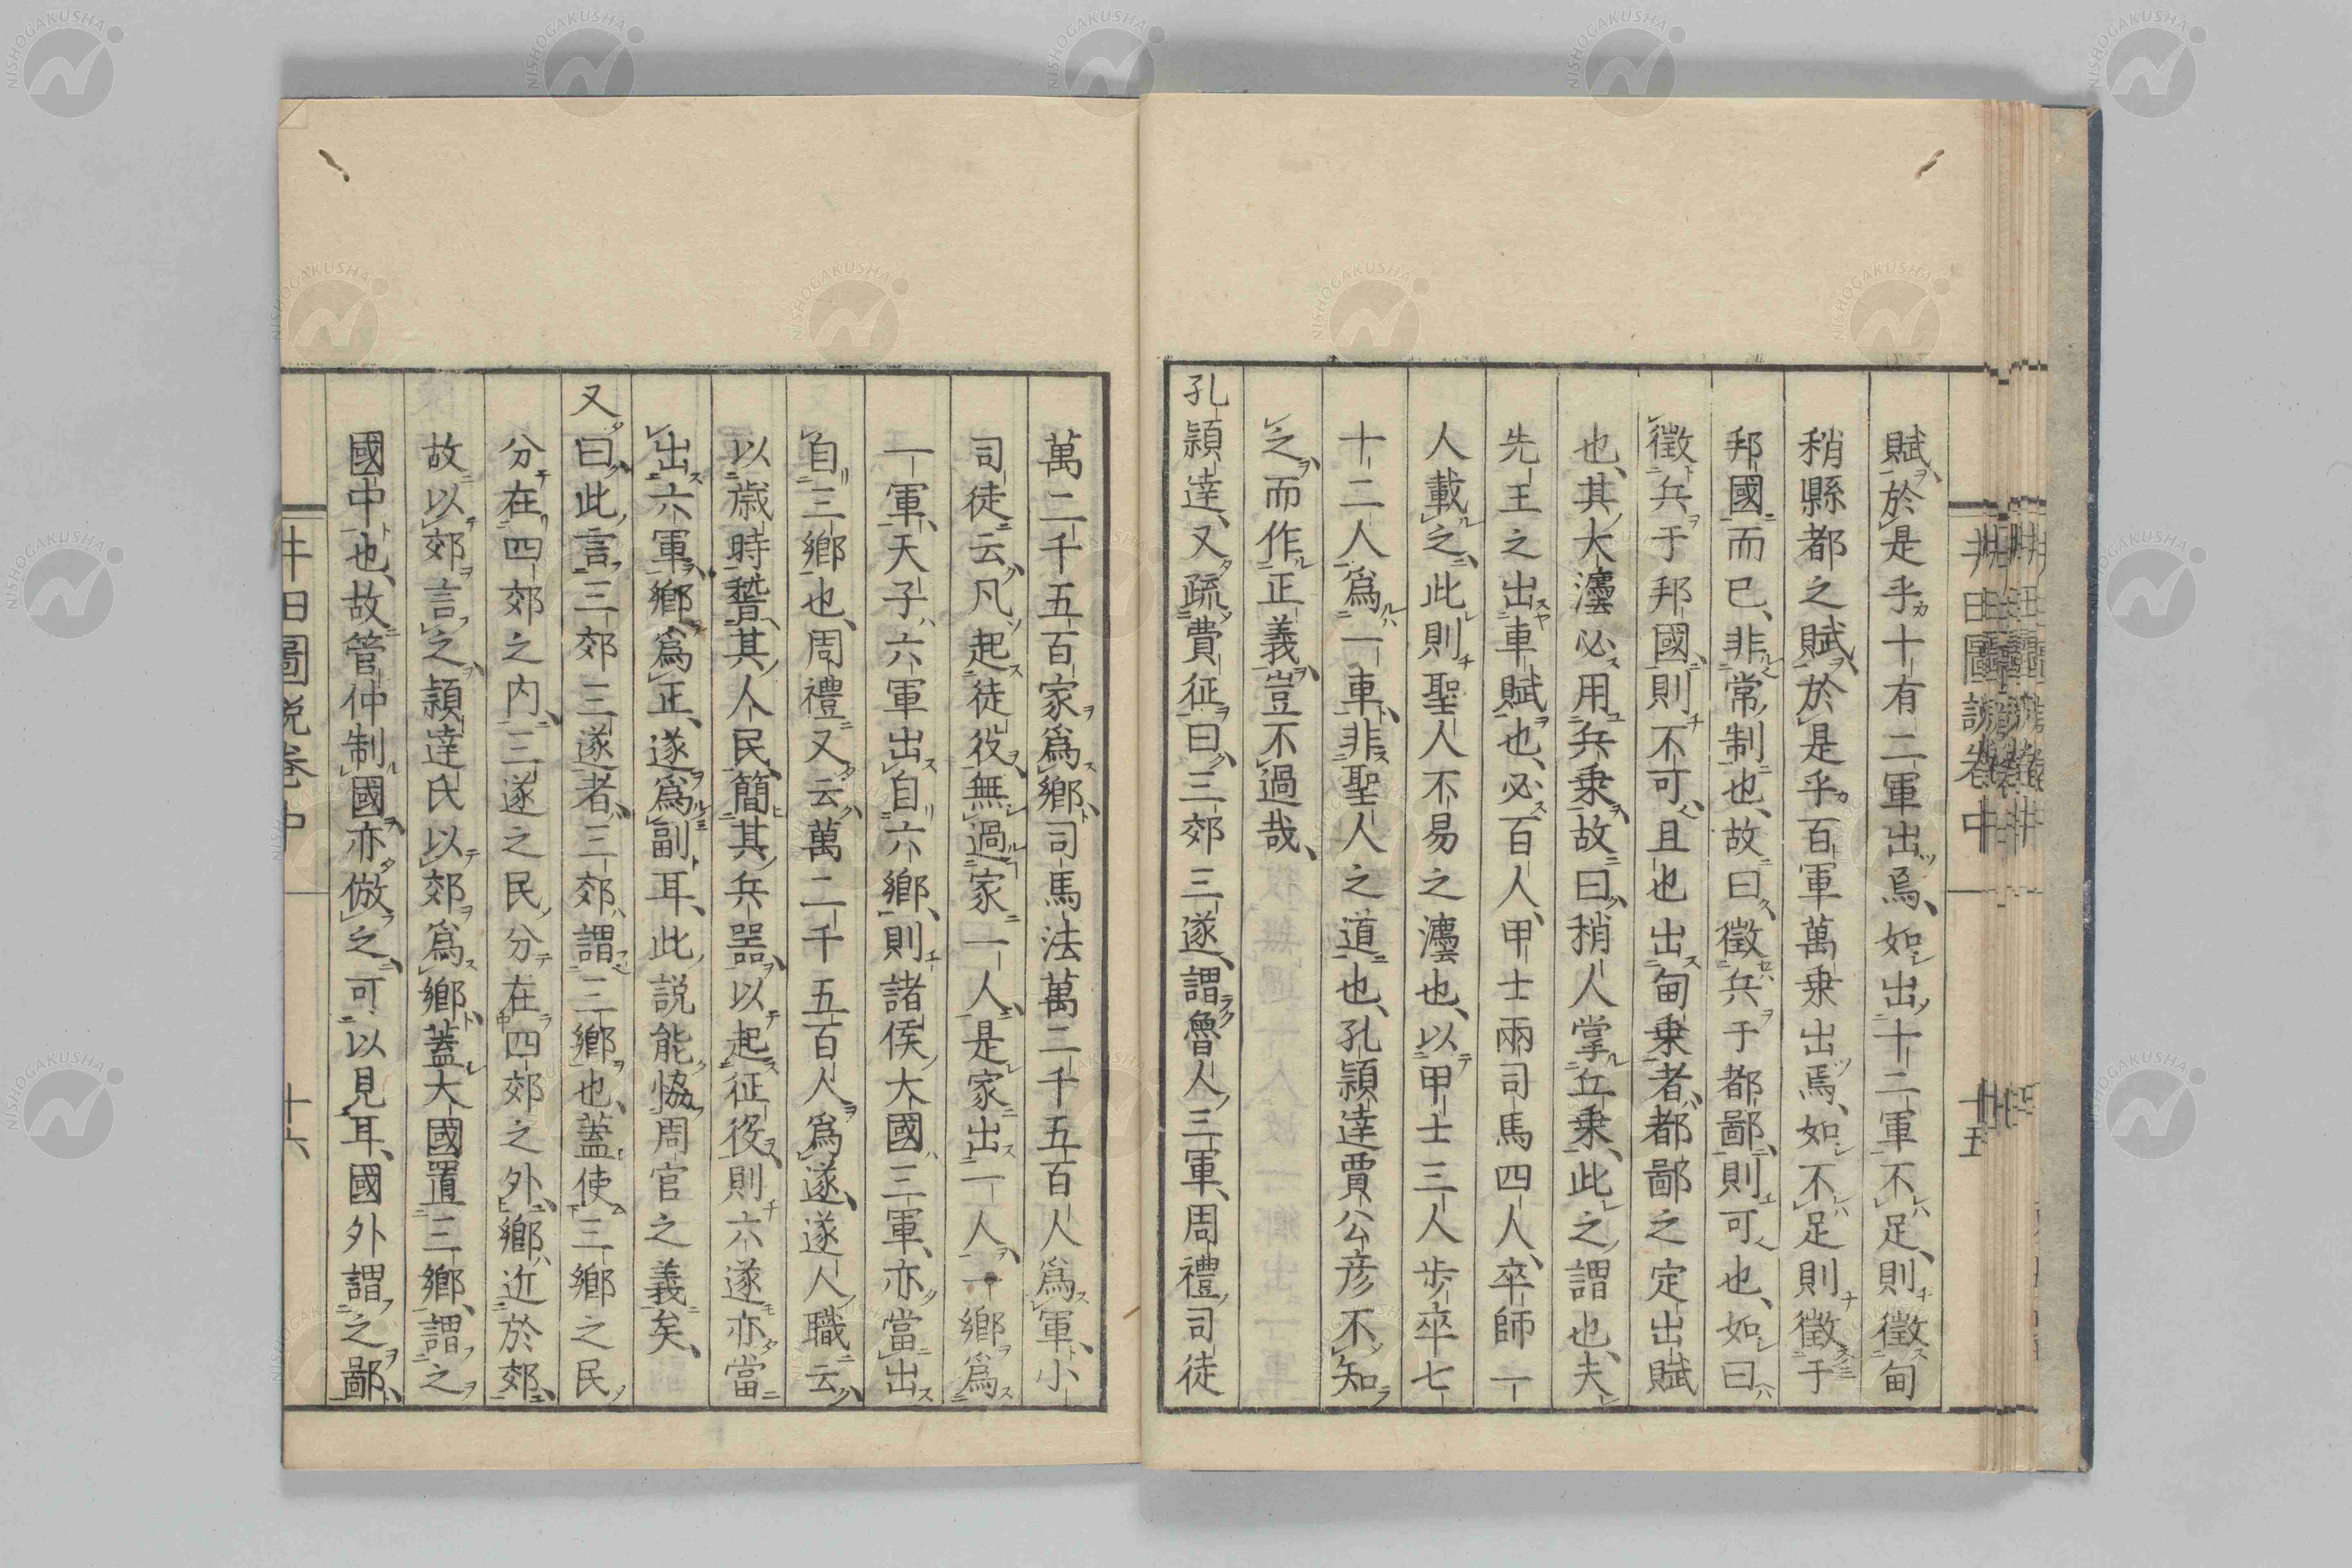 賦於是乎十有二軍出焉、如出十二軍不足、則徵甸
稍縣都之賦、於是乎百軍萬乗出焉、如不足則徵于
邦國而已、非常制也、故曰、徵兵于都鄙、則可也、如曰
徵兵于邦國、則不可、且也出甸乗者、都鄙之定出賦
也、其大灋必用兵乗、故曰、稍人掌丘乗、此之謂也、夫
先王之出車賦也、必百人、甲士兩司馬四人、卒師一
人載之、此則聖人不易之灋也、以甲士三人歩卒七
十二人、為一車、非聖人之道也、孔頴達賈公彦不知
之、而作正義、豈不過哉、
孔頴達、又疏費征曰、三郊三遂、謂魯人三軍、周禮司徒
萬二千五百家爲鄉、司馬法萬二千五百人爲軍、小
司徒云、凡起徒役、無過家一人、是家出一人、一鄉爲
一軍、天子六軍出自六鄉、則諸侯大國三軍、亦當出
自三鄉也、周禮又云、萬二千五百人爲遂、遂人職云、
以歳時稽其人民、簡其兵噐、以起征役、則六遂亦當
出六軍、鄉爲正、遂爲副耳、此説能恊周官之義矣、
又曰、此言三郊三遂者、三郊謂三鄉也、蓋使三鄉之民
分在四郊之内、三遂之民分在四郊之外、鄉近於郊、
故以郊言之、頴達氏以郊爲鄉、蓋大國置三鄉、謂之
國中也、故管仲制國亦倣之、可以見耳、國外謂之鄙、
井田圖説卷中
十五
井田圖説卷中
十六
NISHOGAKUSHA